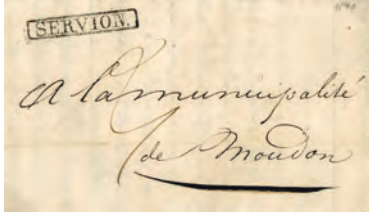 SERVION.
A la municipalité
de Moudon